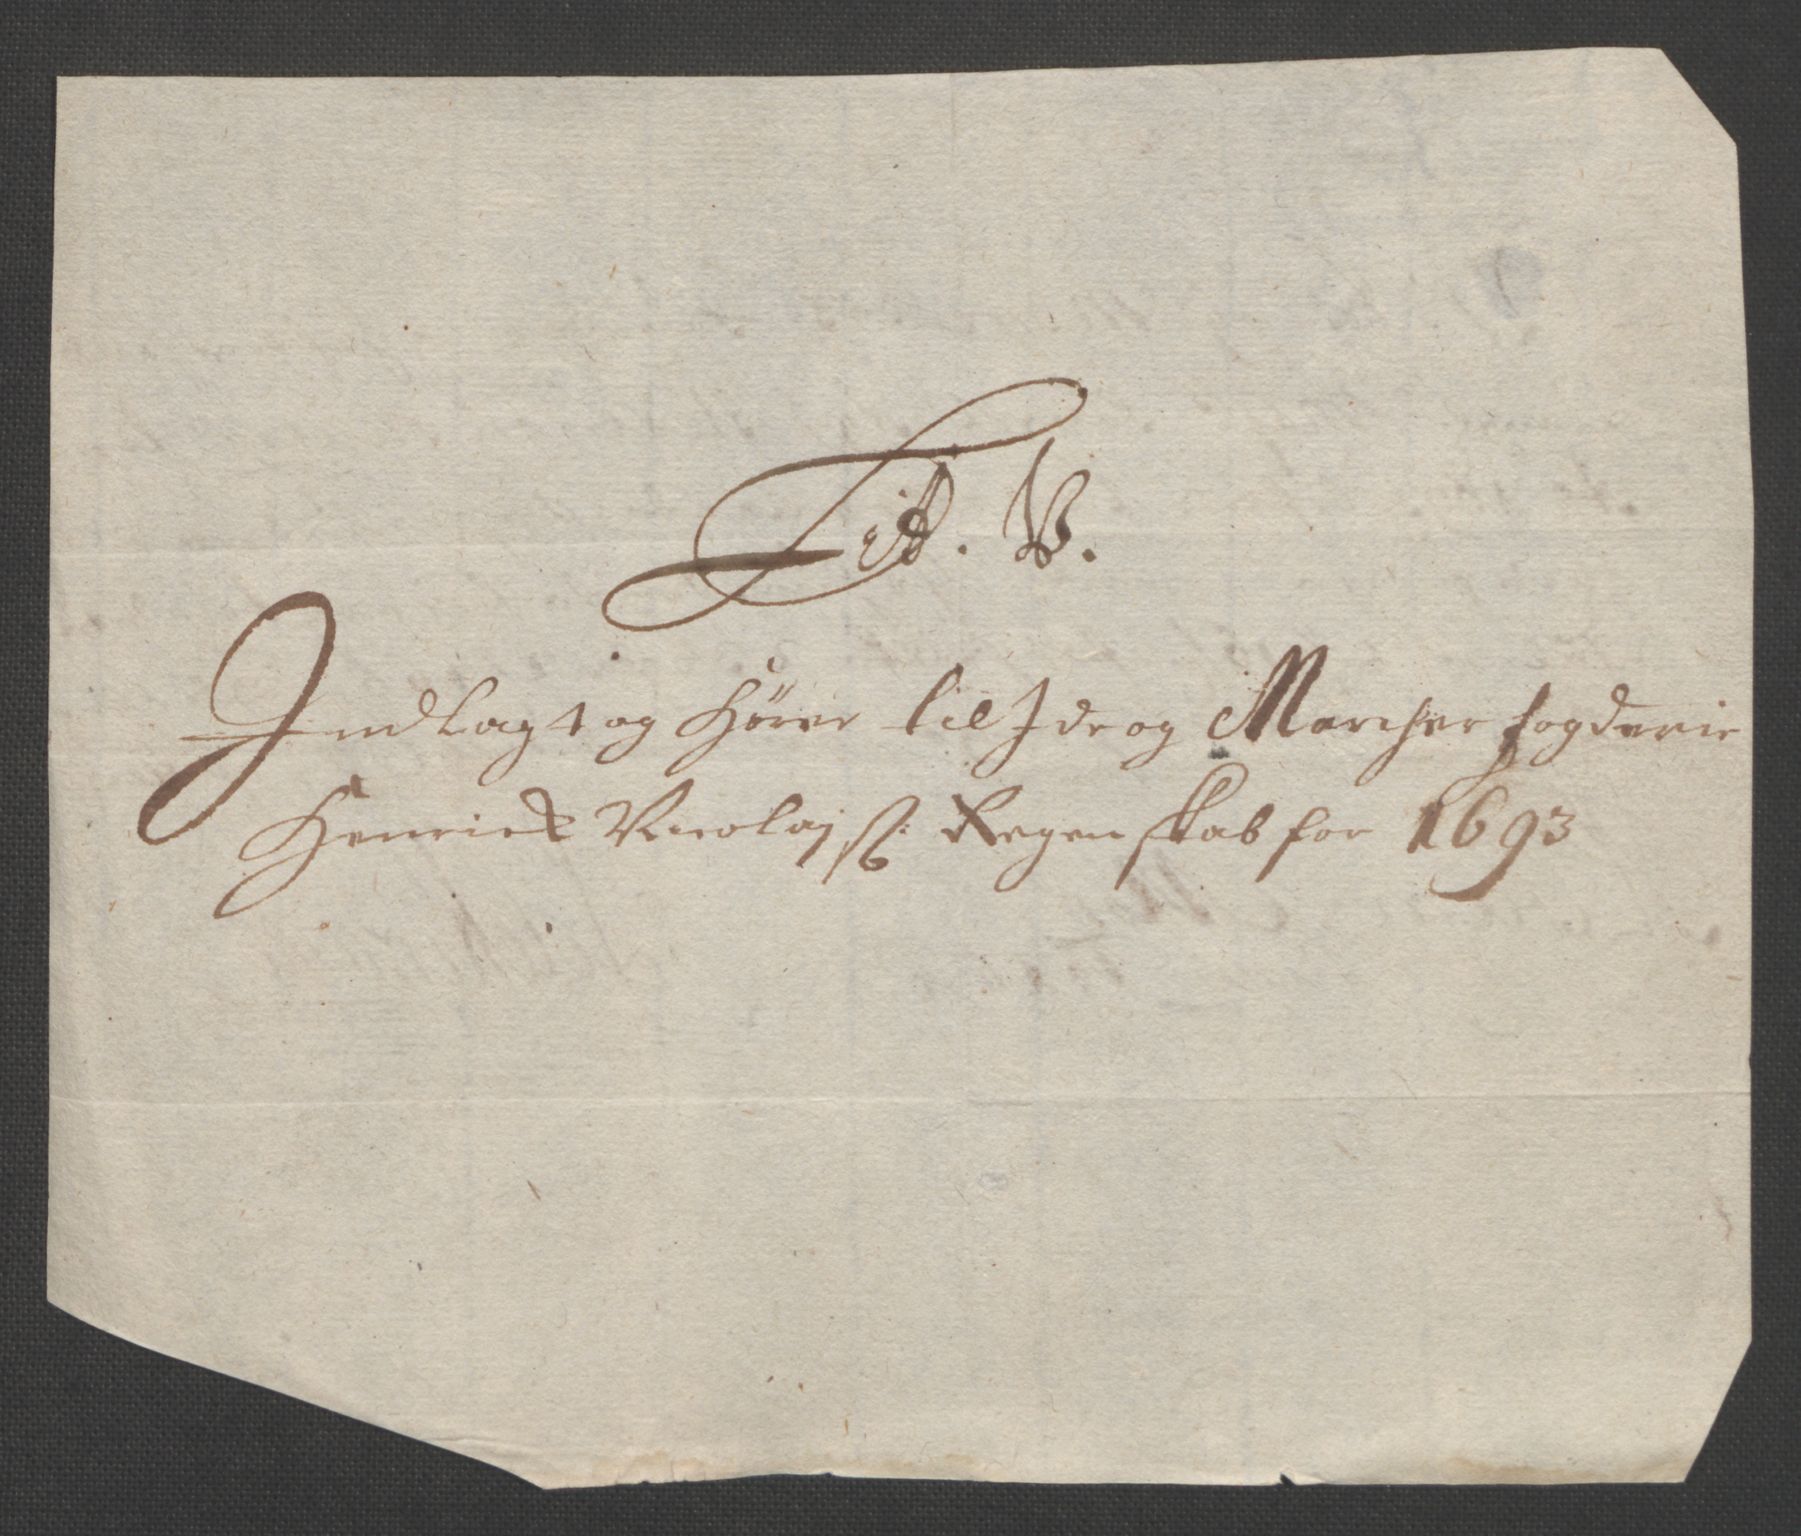 Lit. B.
Indlagt og hører til Ide og Marcher fogderie
Henrick Nicolajss: Regenskab for 1693